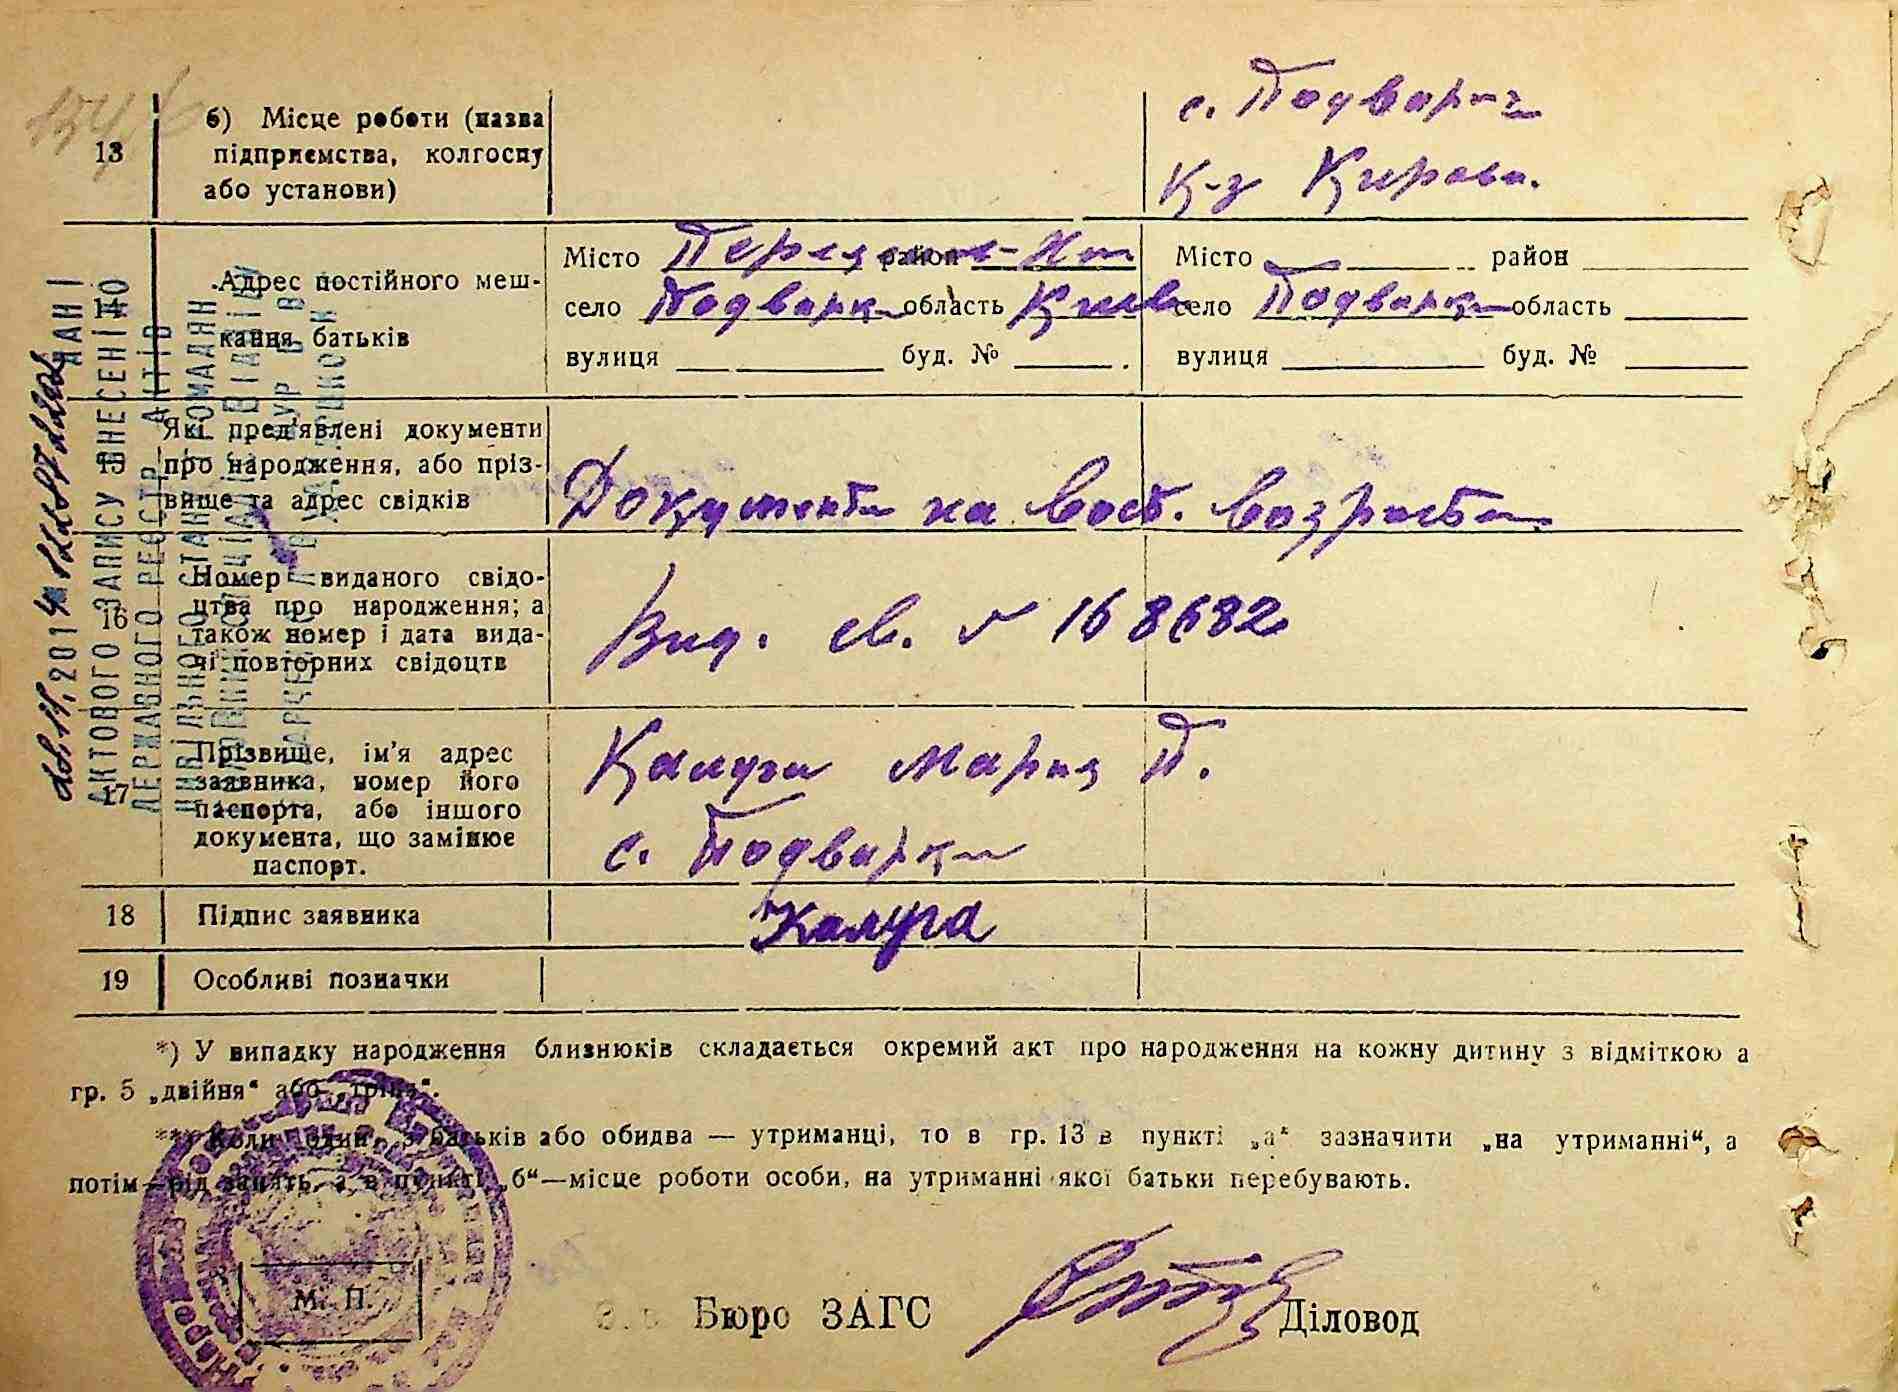 13
б) Місце роботи (назва
підприємства, колгоспу
або установи)
с. Подварки
К-з Кирова.
14
Адрес постійного меш-
кання батьків
Місто район
село Подварки область Киев
вулиця буд. №
Місто район
село Подварки область
вулиця буд. №
15
Які пред'явлені документи
про народження, або пріз-
вище та адрес свідків
Документи на вост. возраста
16
Номер виданого свідо-
цтва про народження; а
також номер і дата вида-
чі повторних свідоцтв
Вид. св. № 168682
17
Прізвище, ім'я адрес
заявника, номер його
паспорта, або іншого
документа, що замінює
паспорт.
Калуга Мария П.
с. Подварки
18 Підпис заявника
Калуга
19 Особливі позначки
*) У випадку народження близнюків складається окремий акт про народження на кожну дитину з відміткою а
гр. 5 „двійня“ або „трійня“.
**) Коли один з батьків або обидва — утриманці, то в гр. 13 в пункті „а“ зазначити „на утриманні“, а
потім—рід занять, а в пункті „б“—місце роботи особи, на утриманні якої батьки перебувають.
М. П.
Бюро ЗАГС
Діловод
АКТОВОГО ЗАПИСУ ВНЕСЕНІ ДО
ДЕРЖАВНОГО РЕЄСТР АКТІВ